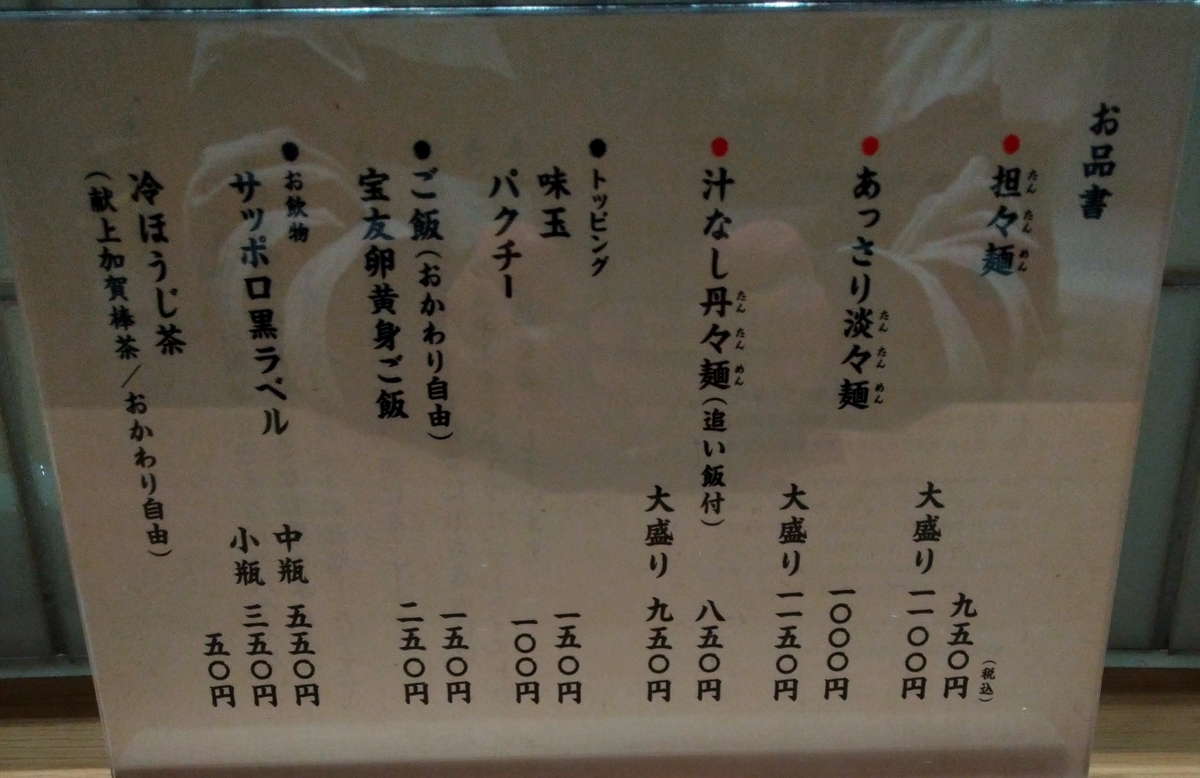 お品書
担々麺 九五〇円
たんたんめん
(税込)
大盛り 一一〇〇円
あっさり淡々麺 一〇〇〇円
たんたんめん
大盛り 一一五〇円
汁なし丹々麺(追い飯付) 八五〇円
たんたんめん
大盛り 九五〇円
トッピング
味玉 一五〇円
パクチー 一〇〇円
ご飯(おかわり自由) 一五〇円
宝友卵黄身ご飯 二五〇円
お飲物
サッポロ黒ラベル 中瓶 五五〇円
小瓶 三五〇円
冷ほうじ茶 五〇円
(献上加賀棒茶/おかわり自由)